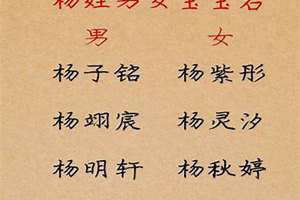 杨姓男女宝宝名
男 女
杨子铭 杨紫彤
杨翊宸 杨灵汐
杨明轩 杨秋婷